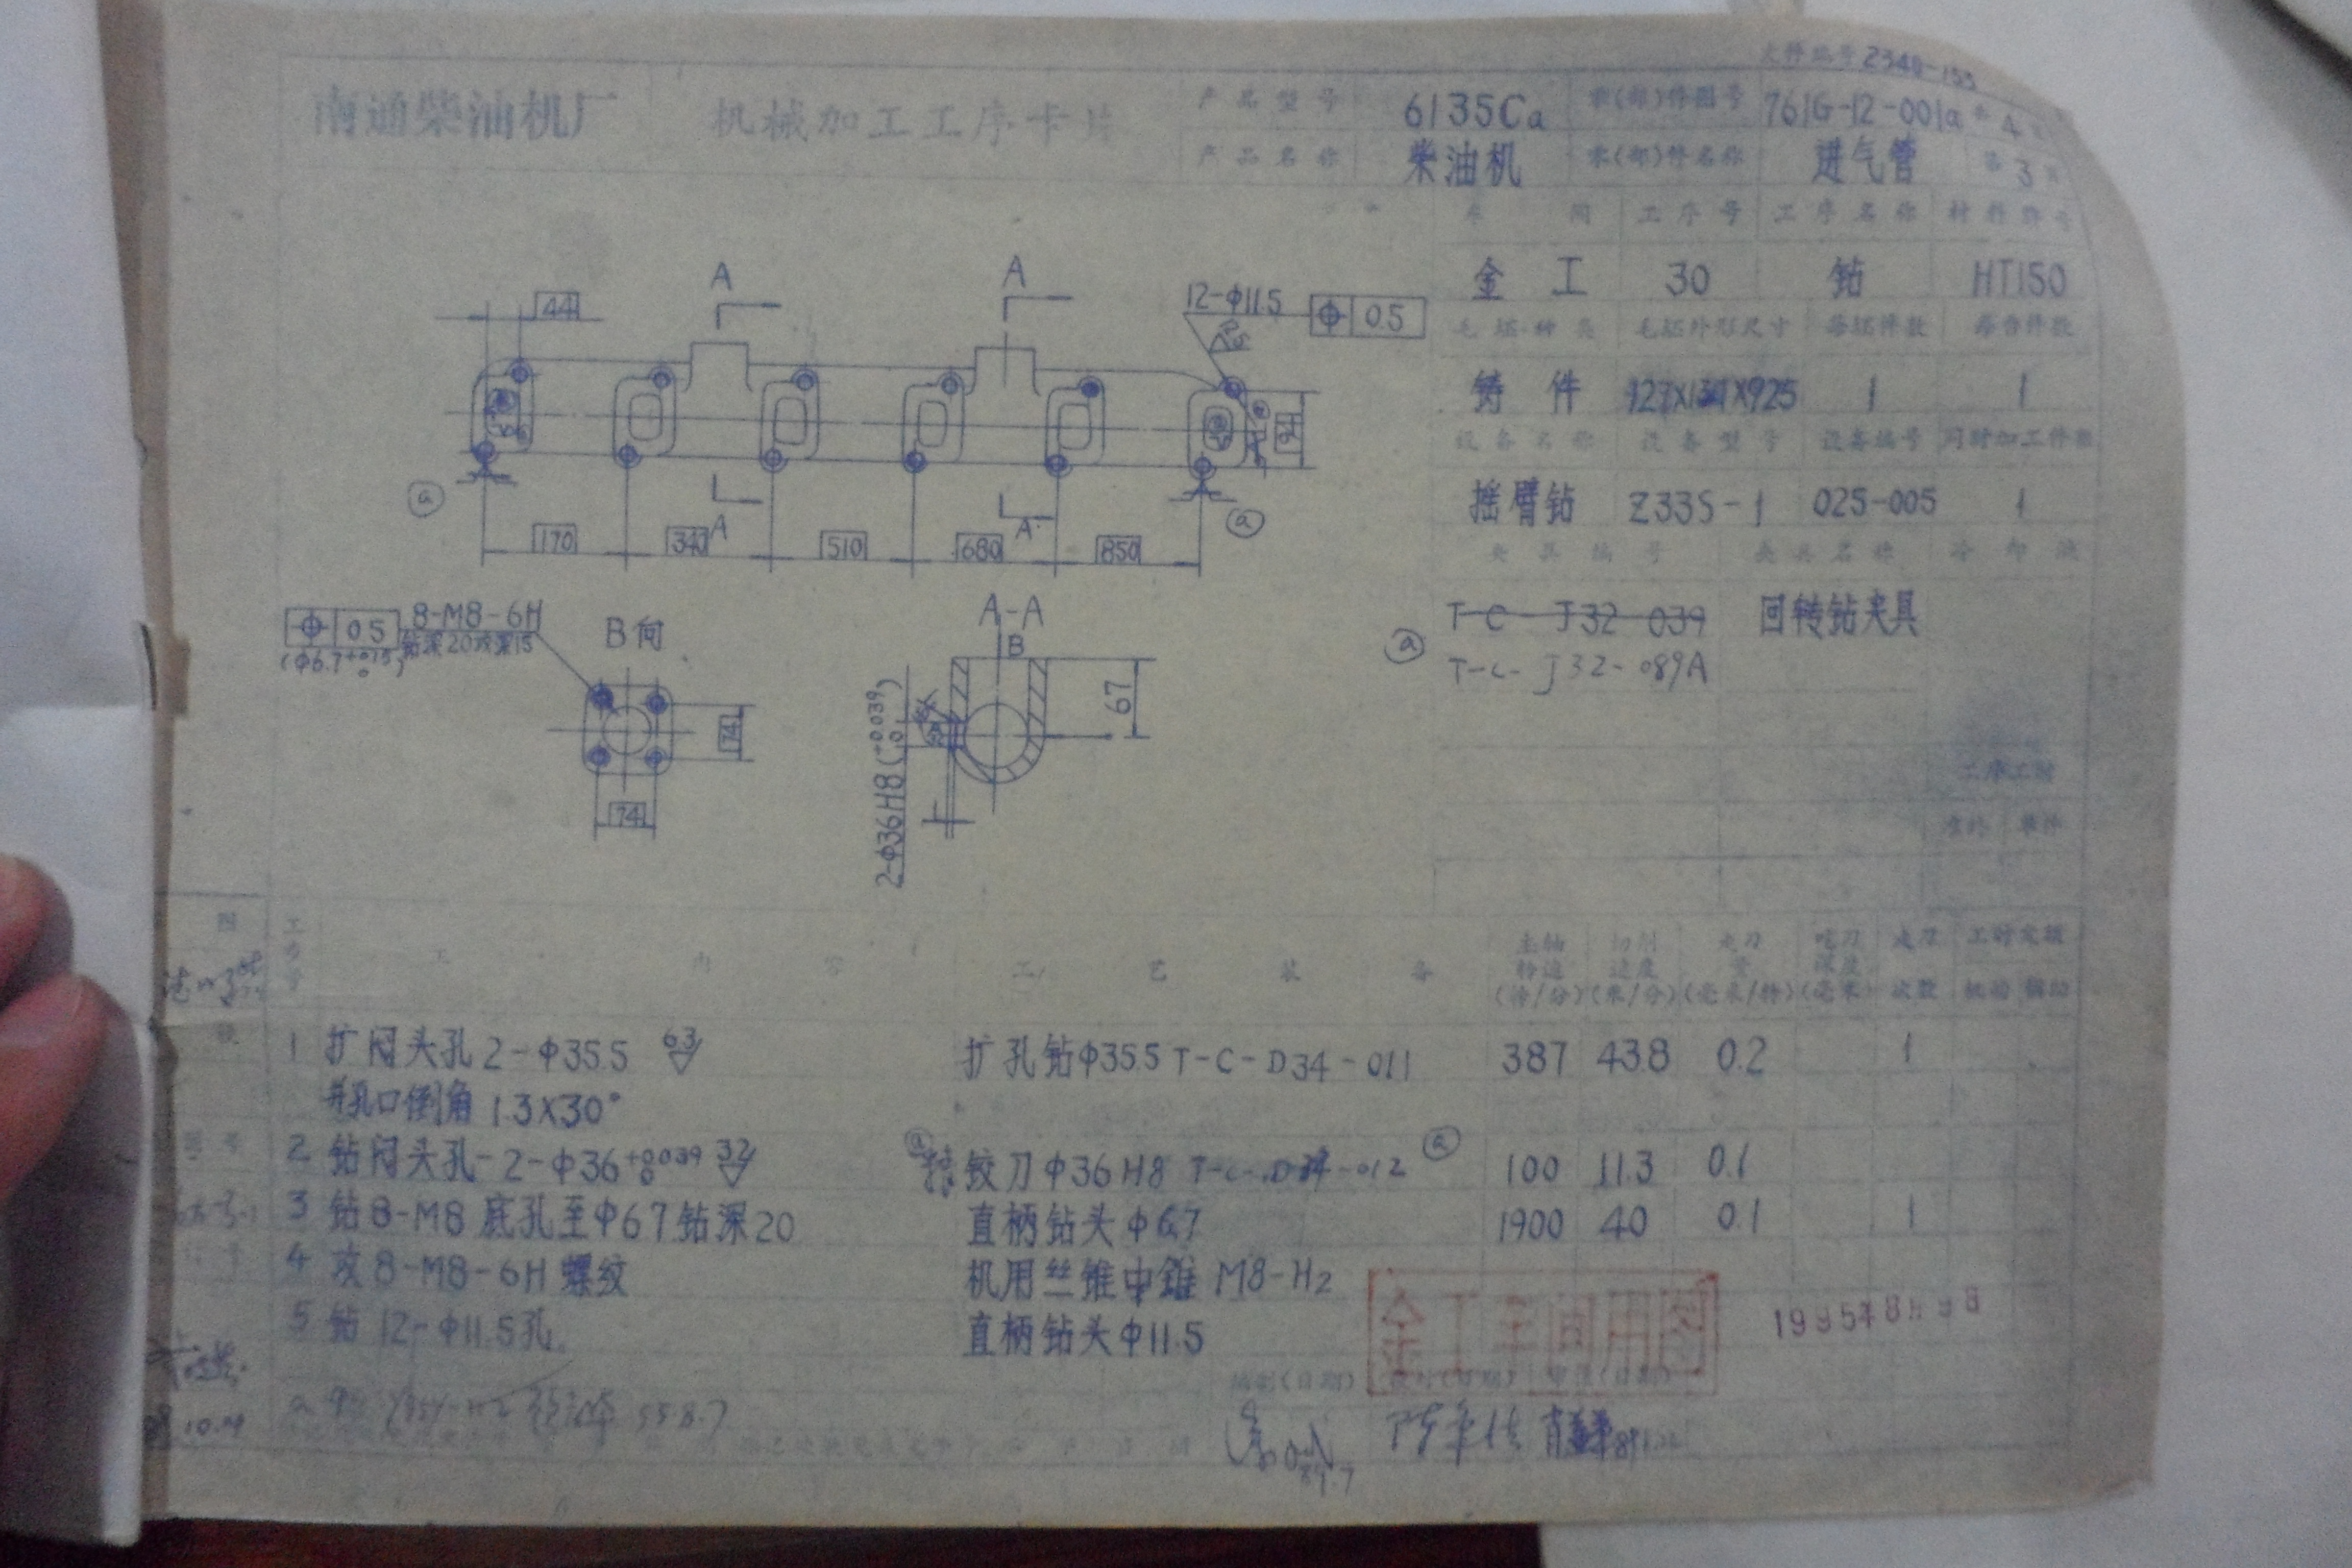 文件编号 2540-155
南通柴油机厂 机械加工工序卡片
产品型号 6135Ca 零(部)件图号 761G-12-001a 共 4 页
产品名称 柴油机 零(部)件名称 进气管 第 3 页
车间 工序号 工序名称 材料牌号
金工 30 钻 HT150
毛坯种类 毛坯外形尺寸 每坯件数 每台件数
铸件 1 1
设备名称 设备型号 设备编号 同时加工件数
摇臂钻 Z335-1 025-005 1
夹具编号 夹具名称 冷却液
T-C-J32-039 回转钻夹具
ⓐ T-C-J32-089A
工序工时
准终 单件
44
A A
12-Φ11.5
⌖ 0.5
94
ⓐ ⓐ
A A
170 340 510 680 850
⌖ 0.5 8-M8-6H
(Φ6.7+0.15 0) 钻深20攻深15
B向
74
74
A-A
B
67
2-Φ36H8(+0.039 0)
工步号 工步内容 工艺装备 主轴转速(转/分) 切削速度(米/分) 走刀量(毫米/转) 吃刀深度(毫米) 走刀次数 工时定额 机动 辅助
1 扩闷头孔2-Φ35.5 6.3 扩孔钻Φ35.5 T-C-D34-011 387 43.8 0.2 1
并孔口倒角1.3X30°
2 钻闷头孔-2-Φ36+0.039 0 3.2 ⓐ 铰刀Φ36H8 T-C-D34-012 ⓐ 100 11.3 0.1
3 钻8-M8底孔至Φ6.7钻深20 直柄钻头Φ6.7 1900 40 0.1 1
4 攻8-M8-6H螺纹 机用丝锥中锥 M8-H2
5 钻12-Φ11.5孔 直柄钻头Φ11.5
金工车间用图
编制(日期) 校对(日期) 审核(日期)
89.7